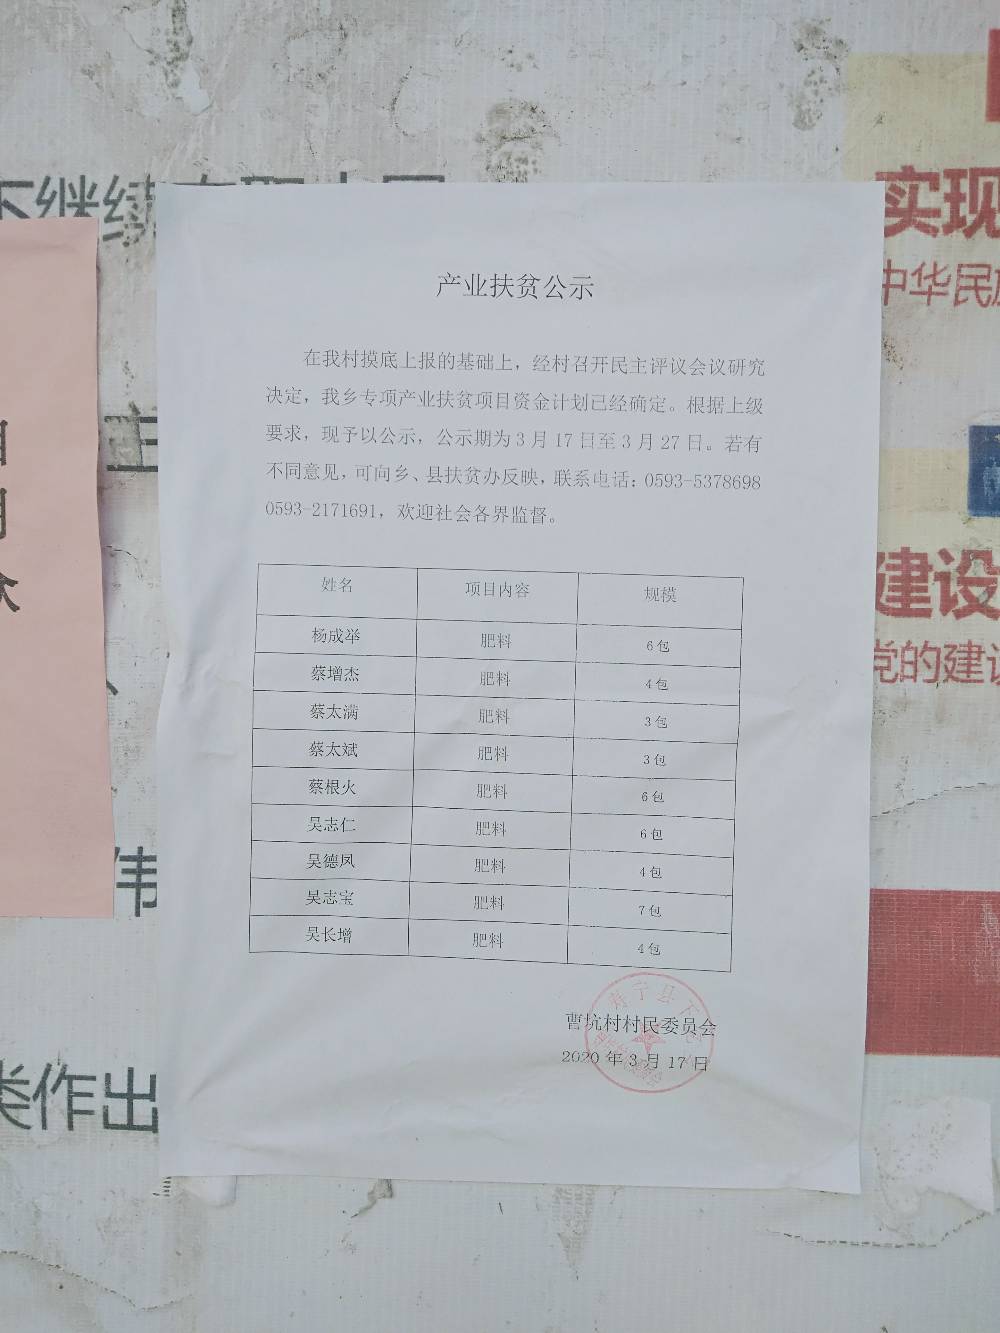 产业扶贫公示
在我村摸底上报的基础上，经村召开民主评议会议研究
决定，我乡专项产业扶贫项目资金计划已经确定。根据上级
要求，现予以公示，公示期为3月17日至3月27日。若有
不同意见，可向乡、县扶贫办反映，联系电话：0593-5378698
0593-2171691，欢迎社会各界监督。
姓名 项目内容 规模
杨成举 肥料 6包
蔡增杰 肥料 4包
蔡太满 肥料 3包
蔡太斌 肥料 3包
蔡根火 肥料 6包
吴志仁 肥料 6包
吴德凤 肥料 4包
吴志宝 肥料 7包
吴长增 肥料 4包
寿宁县下
曹坑村村民委员会
2020年3月17日
下继续
主
伟
类作出
实现
中华民族
建设
党的建设